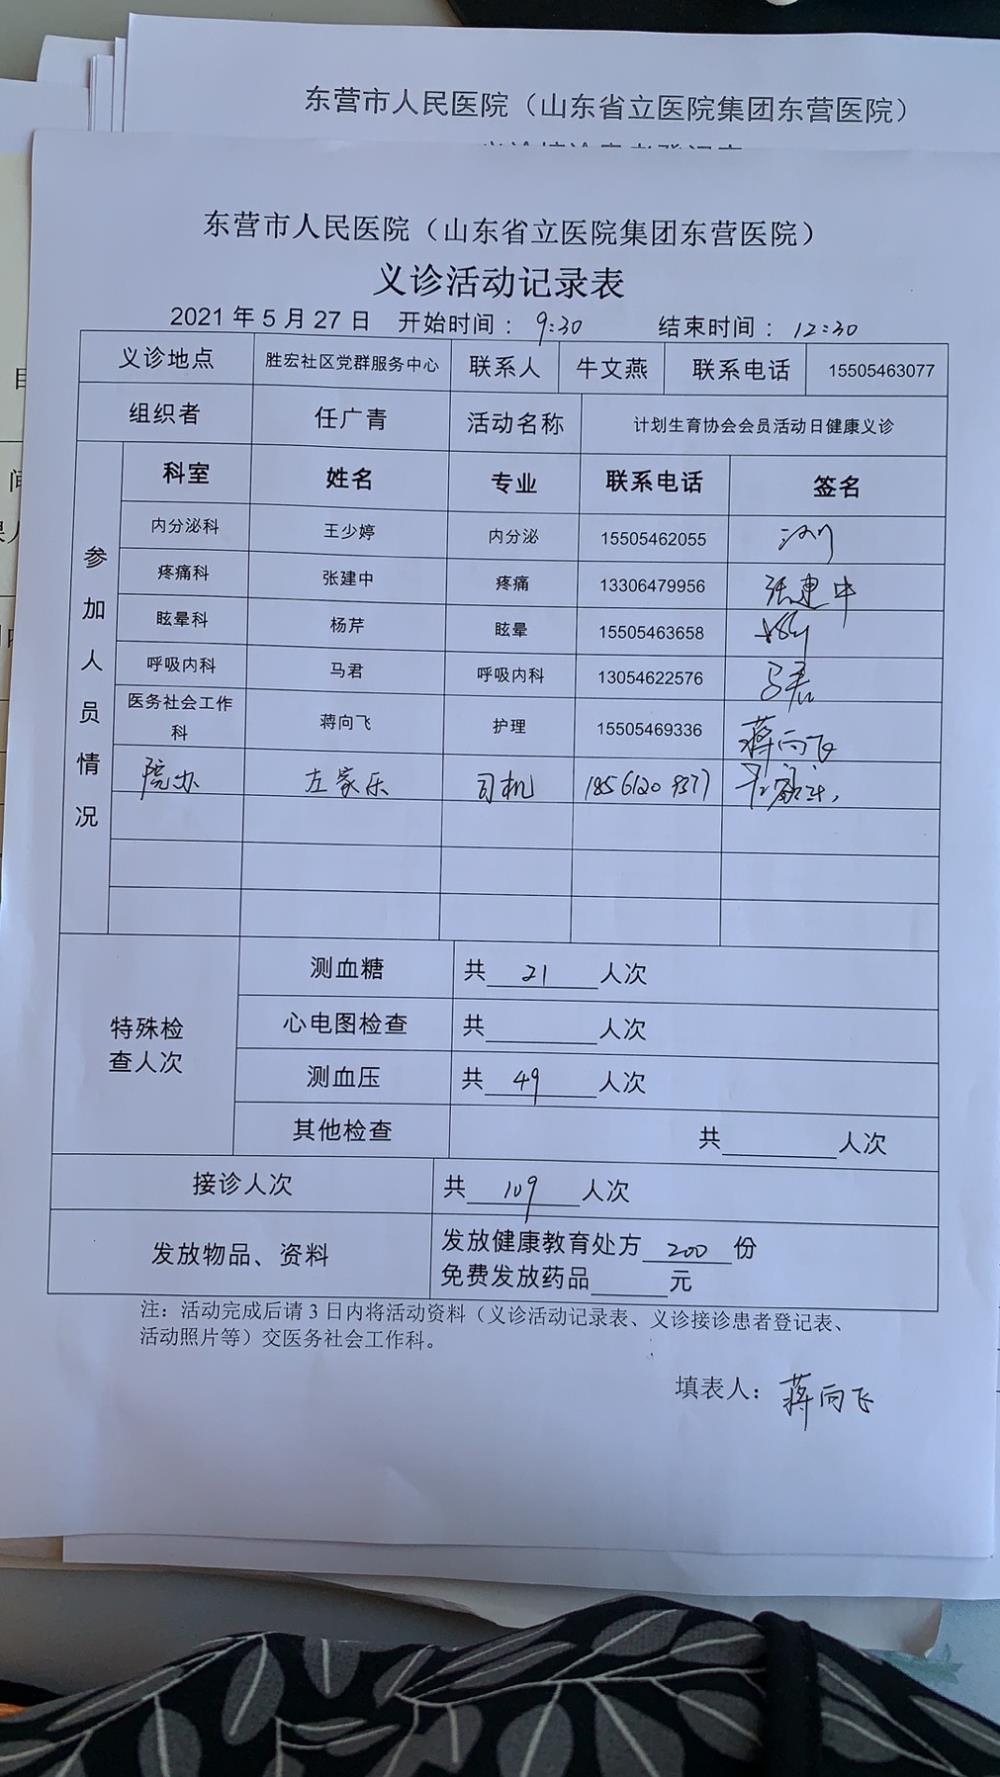 东营市人民医院（山东省立医院集团东营医院）
东营市人民医院（山东省立医院集团东营医院）
义诊活动记录表
2021 年 5 月 27 日 开始时间：9:30 结束时间：12:30
义诊地点 胜宏社区党群服务中心 联系人 牛文燕 联系电话 15505463077
组织者 任广青 活动名称 计划生育协会会员活动日健康义诊
参加人员情况
科室 姓名 专业 联系电话 签名
内分泌科 王少婷 内分泌 15505462055
疼痛科 张建中 疼痛 13306479956 张建中
眩晕科 杨芹 眩晕 15505463658
呼吸内科 马君 呼吸内科 13054622576 马君
医务社会工作科 蒋向飞 护理 15505469336 蒋向飞
院办 左家乐 司机
特殊检查人次
测血糖 共 21 人次
心电图检查 共 人次
测血压 共 49 人次
其他检查 共 人次
接诊人次 共 109 人次
发放物品、资料
发放健康教育处方 200 份
免费发放药品 元
注：活动完成后请 3 日内将活动资料（义诊活动记录表、义诊接诊患者登记表、
活动照片等）交医务社会工作科。
填表人：蒋向飞